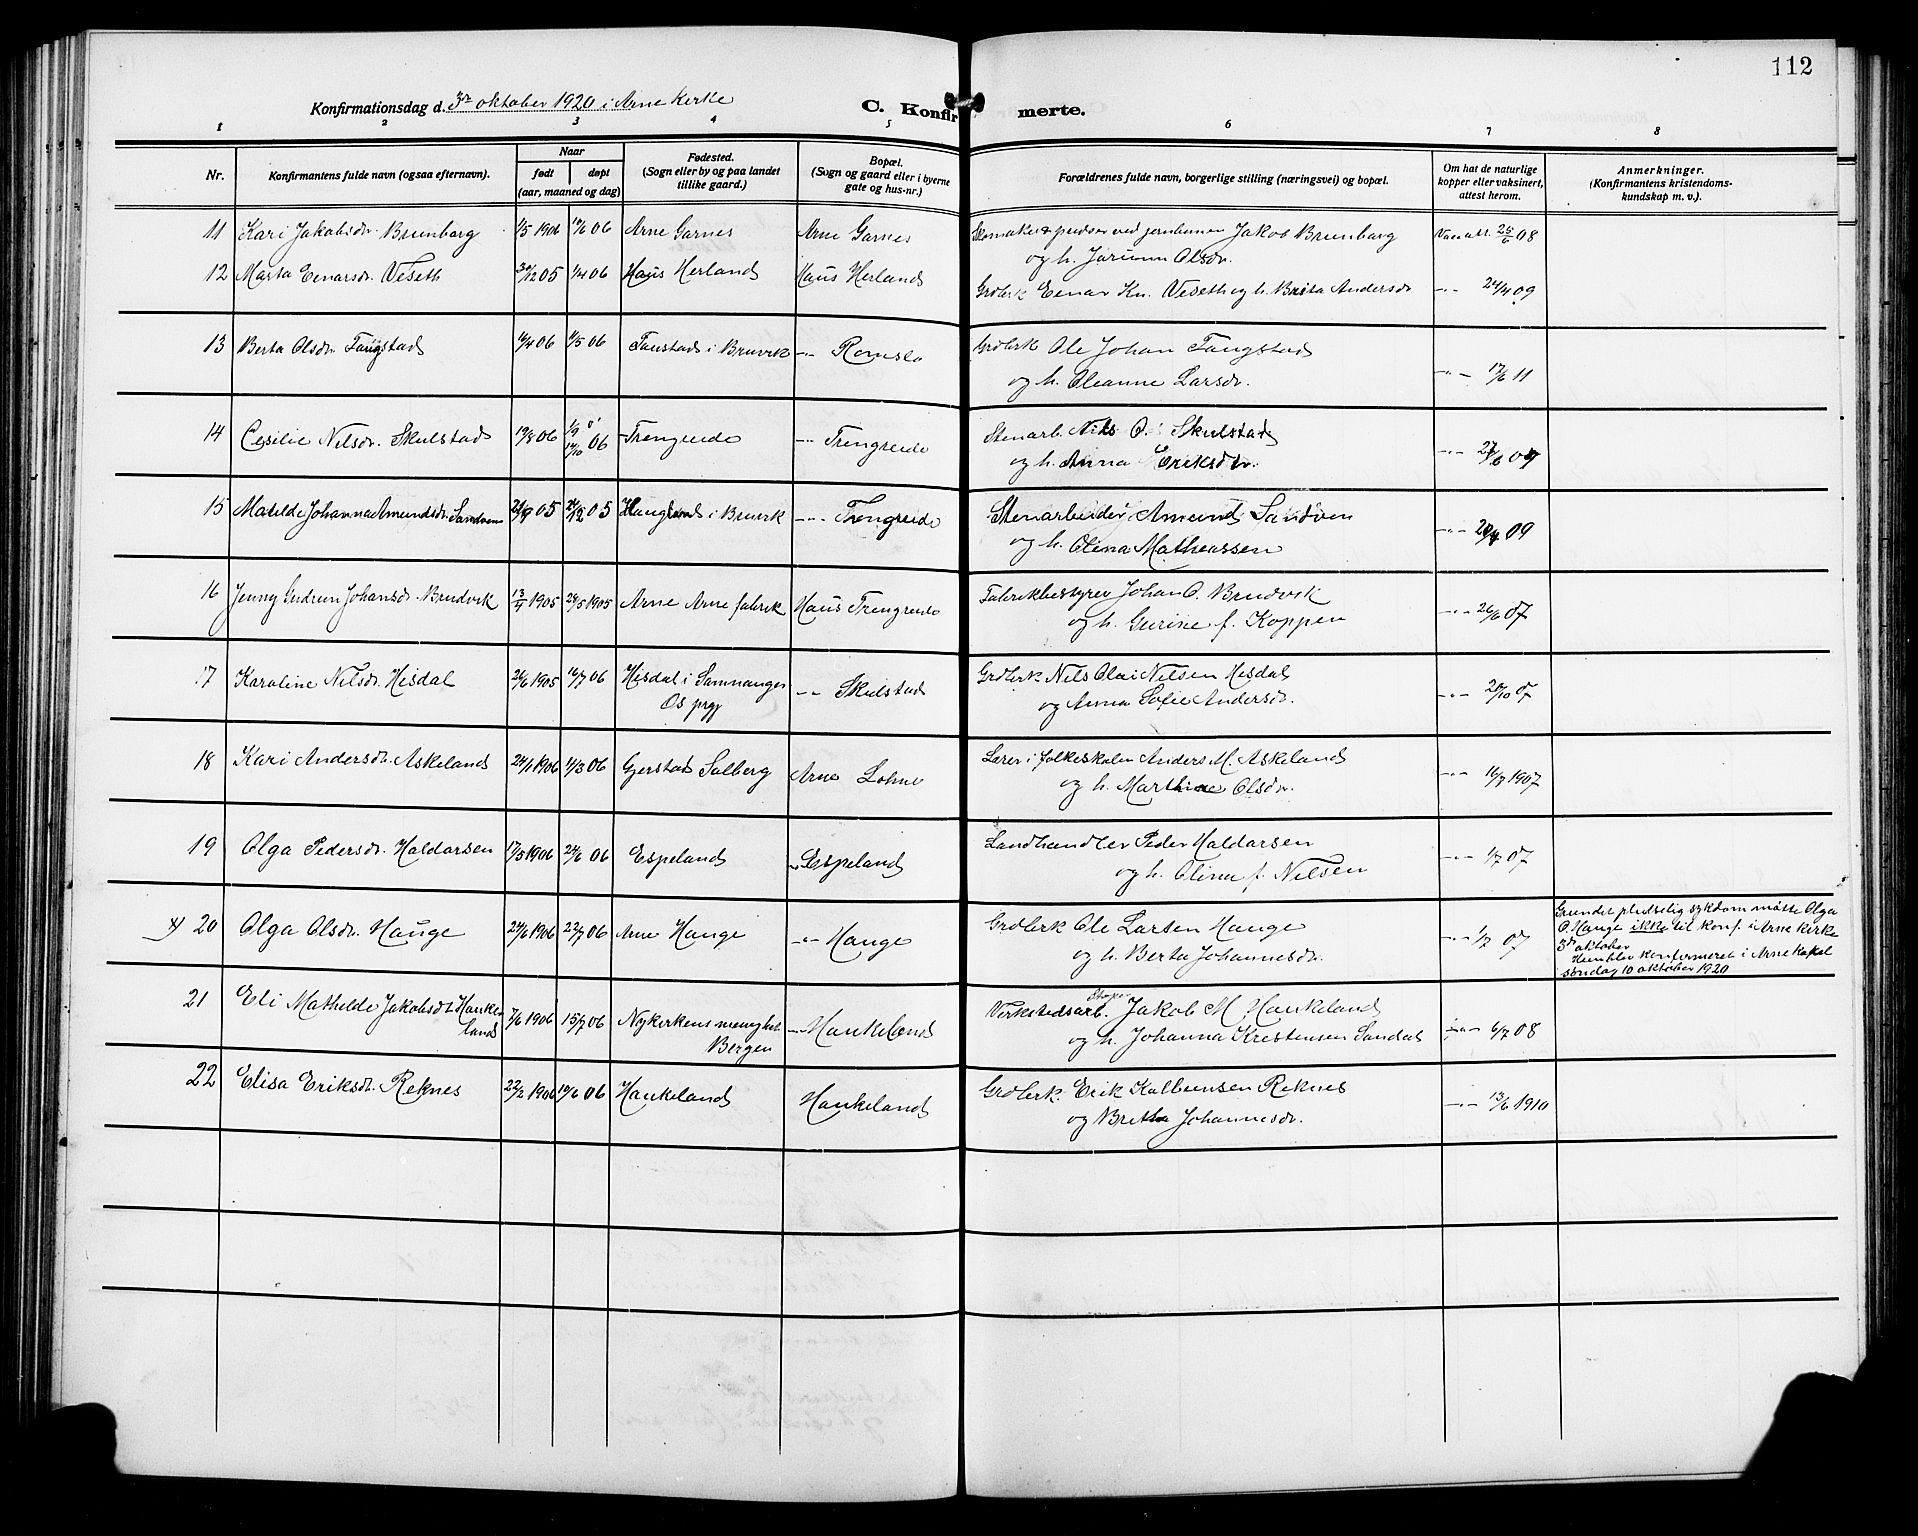 112
Konfirmationsdag d. 3die oktober 1920 i Arne Kirke
C. Konfir merte.
1 2 3 4 5 6 7 8
Nr. Konfirmantens fulde navn (ogsaa efternavn). Naar født døpt (aar, maaned og dag) Fødested. (Sogn eller by og paa landet tillike gaard.) Bopæl. (Sogn og gaard eller i byerne gate og hus-nr.) Forældrenes fulde navn, borgerlige stilling (næringsvei) og bopæl. Om hat de naturlige kopper eller vaksinert, attest herom. Anmerkninger. (Konfirmantens kristendomskundskap m. v.).
11 Kari Jakobsdr. Brunborg 1/5 1906 10/6 06 Arne Garnes Arne Garnes Skomaker ved jernbanen Jakob Brunborg 25/6 08
og h. Jorunn Olsdr.
12 Marta Einarsdr. Veseth 30/12 05 1/4 06 Haus Herland Haus Herland Grdbrk Einar Kn. Veseth og h. Brita Andersdr. -"- 24/4 09
13 Berta Olsdr. Tangstad 10/4 06 /5 06 i Bruvik -"- Romslo Grdbrk Ole Johan Tangstad
og h. Oleanne Larsdr. -"- 17/6 11
14 Cesilie Nilsdr. Skulstad 19/8 06 14/10 06 Trengreide -"- Trengreide Stenarb. Nils O. Skulstad
og h. Anna Eriksdr. -"- 09
15 Matilde Johanna Amundsdr. Sandven 05 05 Haugland i Bruvik -"- Trengreide Stenarbeider Amund Sandven
og h. Olina Matheussen -"- 09
16 Jenny Gudrun Johansdr. Brudvik 13/4 1905 28/5 1905 Arne Arne fabrik Haus Trengreide Fabrikbestyrer Johan O. Brudvik
og h. Gurine f. Koppen -"- 26/6 07
17 Karoline Nilsdr. Hisdal 1905 16/7 06 Hisdal i Samnanger -"- Skulstad Grdbrk Nils Olai Nilsen Hisdal
Os prgj og Anna Sofie Andersdr. -"- 20/10 07
18 Kari Andersdr. Askeland 24/1 1906 11/3 06 Gjerstad Salberg Arne Lohne Lærer i folkeskolen Anders M. Askeland
og h. Marthine Olsdr. -"- 16/7 1907
19 Olga Pedersdr. Haldorsen 17/5 1906 24/6 06 Espeland -"- Espeland Landhandler Peder Haldorsen
og h. Olina f. Nilsen -"- 1/7 07
x) 20 Olga Olsdr. Hauge 24/6 1906 22/7 06 Arne Hauge -"- Hauge Grdbrk Ole Larsen Hauge
og h. Berta Johannesdr. -"- 1/7 07
Grundet plutselig sykdom måtte Olga
O. Hauge ikke til konf. i Arne Kirke
3die oktober
Hun blev konfirmeret i Arne Kapel
søndag 10 oktober 1920
21 Eli Mathilde Jakobsdr. Hauke- 7/6 1906 15/7 06 Nykirkens menighet -"- Haukeland Verkstedsarb. Jakob M. Haukeland
land Bergen og h. Johanna Kristensen Sandal -"- 6/7 08
22 Elisa Eriksdr. Reknes 22/2 1906 10/6 06 Haukeland Haukeland Grdbrk. Erik Kolbeinsen Reknes
og Britha Johannesdr. -"- 13/6 1910